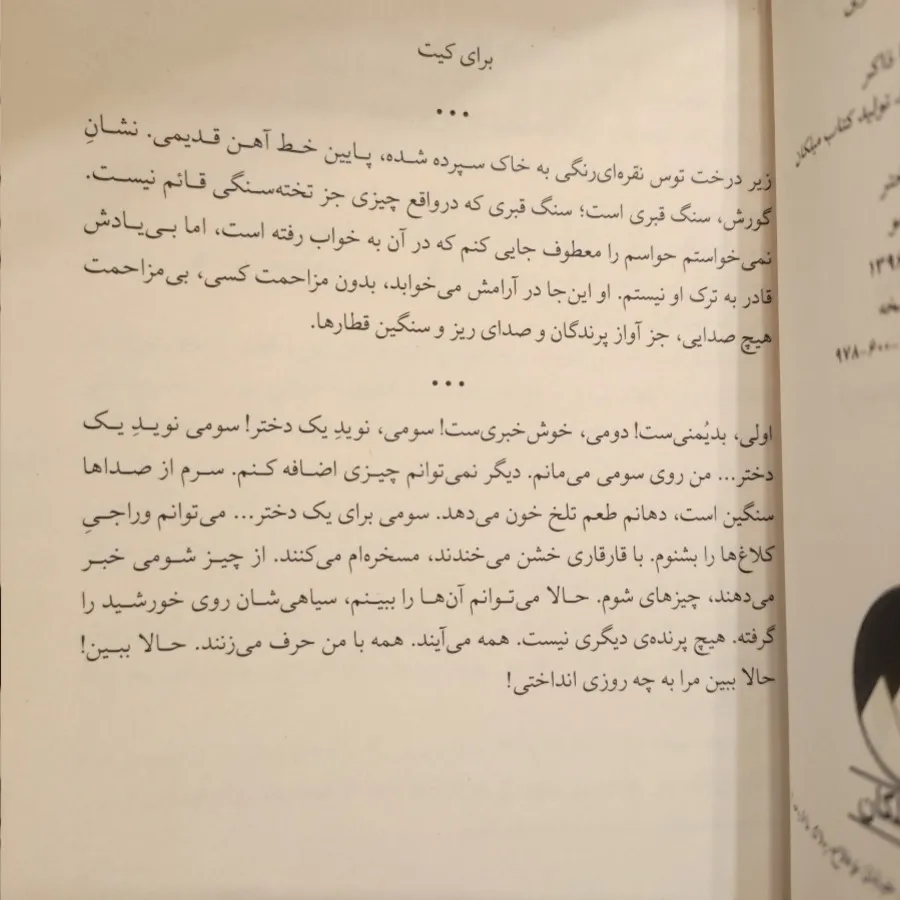 برای کیت
...
زیر درخت توس نقره‌ای‌رنگی به خاک سپرده شده، پایین خط آهن قدیمی. نشانِ
گورش، سنگ قبری است؛ سنگ قبری که درواقع چیزی جز تخته‌سنگی قائم نیست.
نمی‌خواستم حواسم را معطوف جایی کنم که در آن به خواب رفته است، اما بی‌یادش
قادر به ترک او نیستم. او این‌جا در آرامش می‌خوابد، بدون مزاحمت کسی، بی‌مزاحمت
هیچ صدایی، جز آواز پرندگان و صدای ریز و سنگین قطارها.
...
اولی، بدیُمنی‌ست! دومی، خوش‌خبری‌ست! سومی، نویدِ یک دختر! سومی نویدِ یک
دختر... من روی سومی می‌مانم. دیگر نمی‌توانم چیزی اضافه کنم. سرم از صداها
سنگین است، دهانم طعم تلخ خون می‌دهد. سومی برای یک دختر... می‌توانم وراجیِ
کلاغ‌ها را بشنوم. با قارقاری خشن می‌خندند، مسخره‌ام می‌کنند. از چیز شومی خبر
می‌دهند، چیزهای شوم. حالا می‌توانم آن‌ها را ببینم، سیاهی‌شان روی خورشید را
گرفته. هیچ پرنده‌ی دیگری نیست. همه می‌آیند. همه با من حرف می‌زنند. حالا ببین!
حالا ببین مرا به چه روزی انداختی!
تولید کتاب میلکان